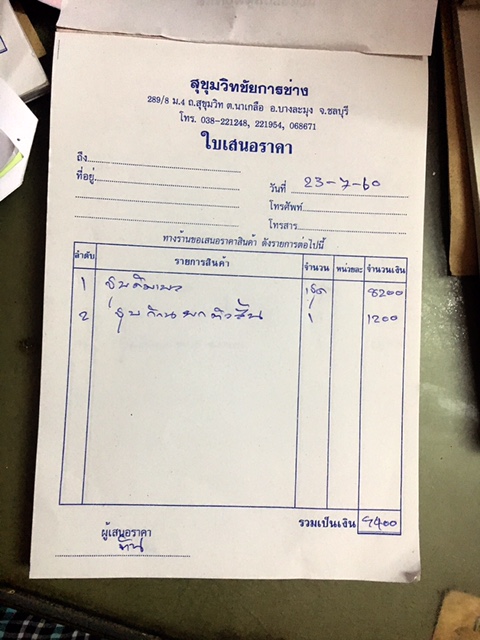 สุขุมวิทชัยการช่าง
289/8 ม.4 ถ.สุขุมวิท ต.นาเกลือ อ.บางละมุง จ.ชลบุรี
โทร. 038-221248, 221954, 068671
ใบเสนอราคา
ถึง
ที่อยู่
วันที่ 23-7-60
โทรศัพท์
โทรสาร
ทางร้านขอเสนอราคาสินค้า ดังรายการต่อไปนี้
ลำดับ รายการสินค้า จำนวน หน่วยละ จำนวนเงิน
1 ชุด 8200
2 1 1200
รวมเป็นเงิน 9400
ผู้เสนอราคา